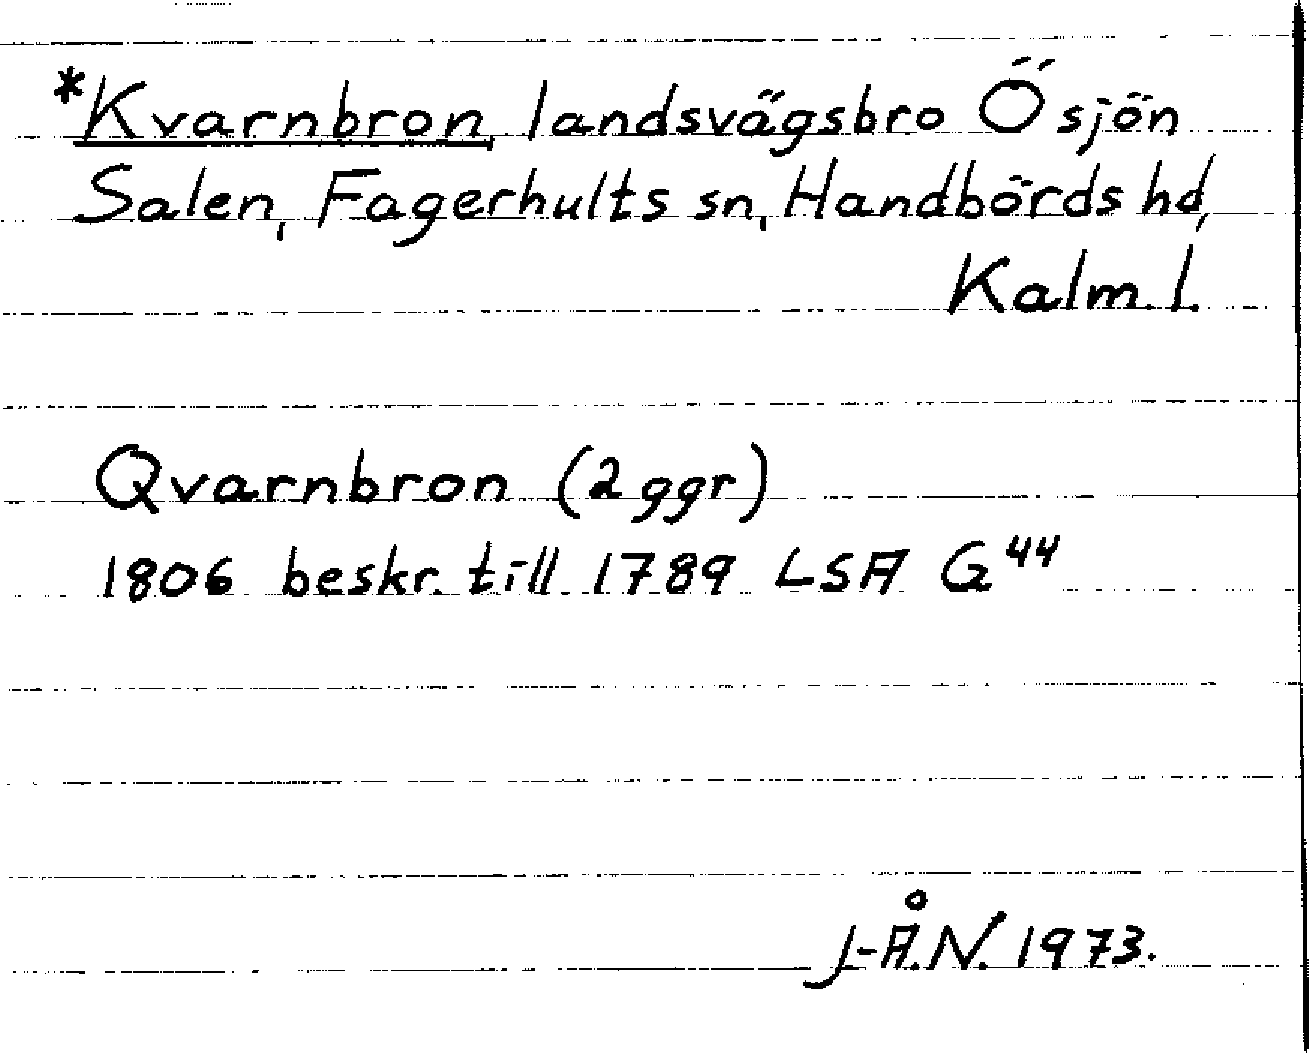 *Kvarnbron, landsvägsbro Ö sjön
Salen, Fagerhults sn, Handbörds hd,
Kalm. l.
Qvarnbron (2 ggr)
1806 beskr. till 1789 LSA G 44
J-Å.N. 1973.